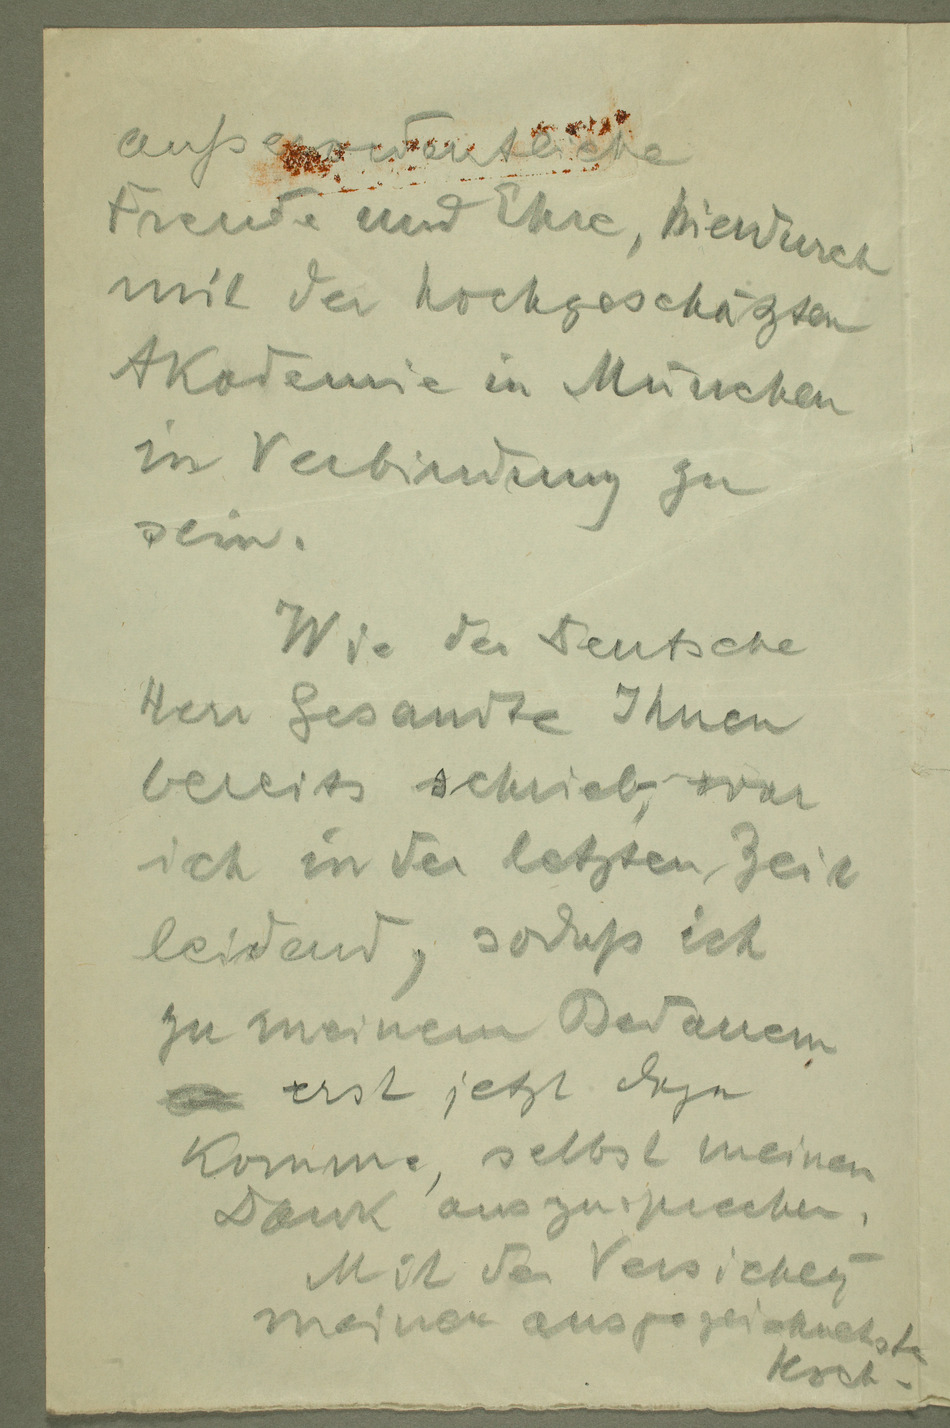 außerordentliche
Freude und Ehre, hierdurch
mit der hochgeschätzten
Akademie in München
in Verbindung zu
sein.
Wie der Deutsche
Herr Gesandte Ihnen
bereits schrieb, war
ich in der letzten Zeit
leidend, sodaß ich
zu meinem Bedauern
erst jetzt dazu
komme, selbst meinen
Dank auszusprechen.
Mit der Versicherg
meiner ausgezeichnetsten
Hoch-